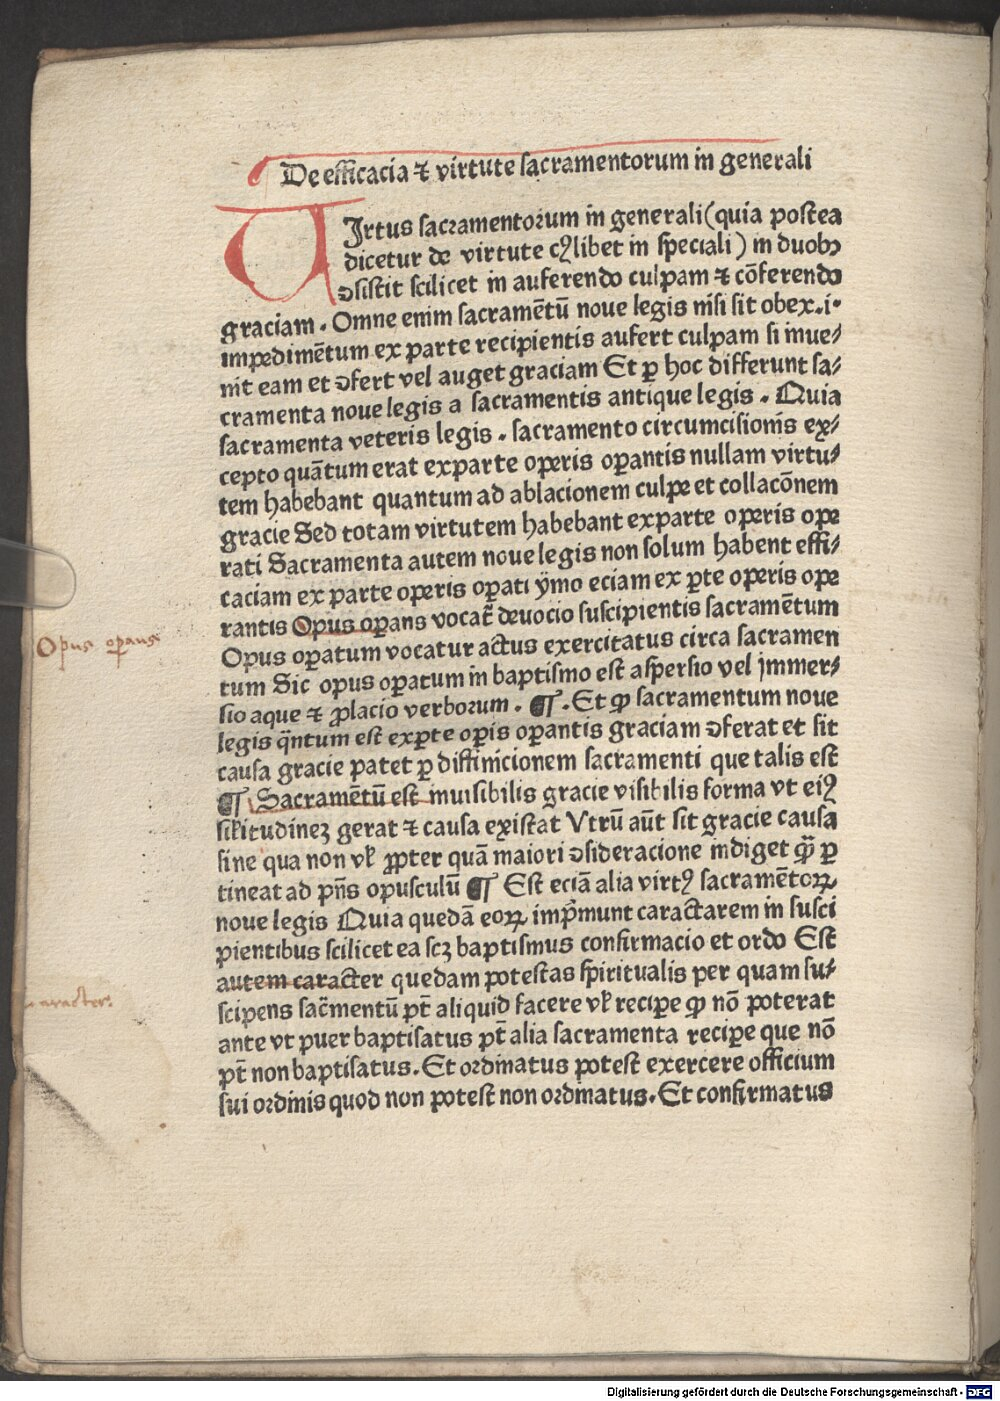 De efficacia ⁊ virtute sacramentorum in generali
VIrtus sacramentorum in generali (quia postea
dicetur de virtute cꝰlibet in speciali) in duobꝰ
ↄsistit scilicet in auferendo culpam ⁊ cōferendo
graciam. Omne enim sacramētū noue legis nisi sit obex .i.
impedimētum ex parte recipientis aufert culpam si inue/
nit eam et ↄfert vel auget graciam Et ꝑ hoc differunt sa/
cramenta noue legis a sacramentis antique legis. Quia
sacramenta veteris legis. sacramento circumcisionis ex/
cepto quātum erat exparte operis oꝑantis nullam virtu/
tem habebant quantum ad ablacionem culpe et collacōnem
gracie Sed totam virtutem habebant exparte operis ope
rati Sacramenta autem noue legis non solum habent effi/
caciam ex parte operis oꝑati ymo eciam ex ꝑte operis ope
rantis Opus oꝑans vocat̃ deuocio suscipientis sacramētum
Opus oꝑatum vocatur actus exercitatus circa sacramen
tum Sic opus oꝑatum in baptismo est aspersio vel jmmer/
sio aque ⁊ ꝓlacio verborum. ¶. Et ꝙ sacramentum noue
legis q̄ntum est exꝑte oꝑis oꝑantis graciam ↄferat et sit
causa gracie patet ꝑ diffinicionem sacramenti que talis est
¶ Sacramētū est inuisibilis gracie visibilis forma vt eiꝰ
sil̃itudineꝫ gerat ⁊ causa existat Vtrū aūt sit gracie causa
sine qua non vl̃ ꝓpter quā maiori ↄsideracione indiget q̄ꝫ ꝑ
tineat ad pñs opusculū ¶ Est eciā alia virtꝰ sacramētoꝝ
noue legis Quia quedā eoꝝ imp̃munt caractarem in susci
pientibus scilicet ea scꝫ baptismus confirmacio et ordo Est
autem caracter quedam potestas spiritualis per quam su/
scipens sac̃mentū pt̃ aliquid facere vl̃ recipe ꝙ nō poterat
ante vt puer baptisatus pt̃ alia sacramenta recipe que nō
pt̃ non baptisatus. Et ordinatus potest exercere officium
sui ordinis quod non potest non ordinatus. Et confirmatus
Opus oꝑans
caracter.
Digitalisierung gefördert durch die Deutsche Forschungsgemeinschaft - DFG